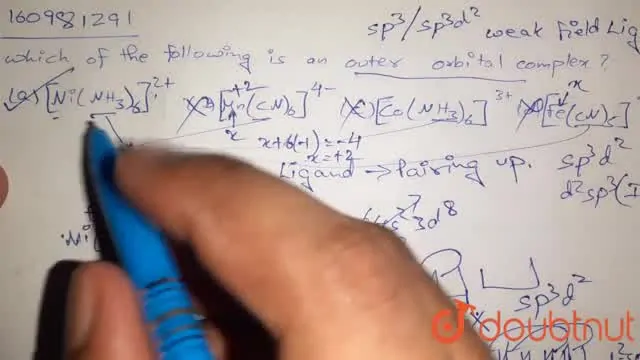 1609831291
sp³/sp³d² weak field Lig
which of the following is an outer orbital complex?
(a) [Ni(NH₃)₆]²⁺ (b) [Mn(CN)₆]⁴⁻ (c) [Co(NH₃)₆]³⁺ (d) [Fe(CN)₆]
+2
x
x
x+6(-1)=-4
x=+2
Ligand → pairing up.
sp³d²
d²sp³(I
Ni
3d⁸
sp³d²
doubtnut